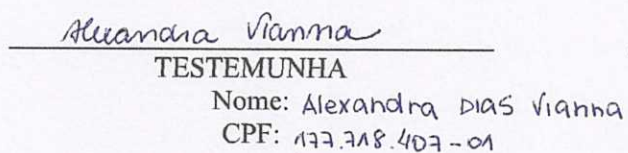 Alexandra Vianna
TESTEMUNHA
Nome: Alexandra DIAS Vianna
CPF: 177.718.407-01